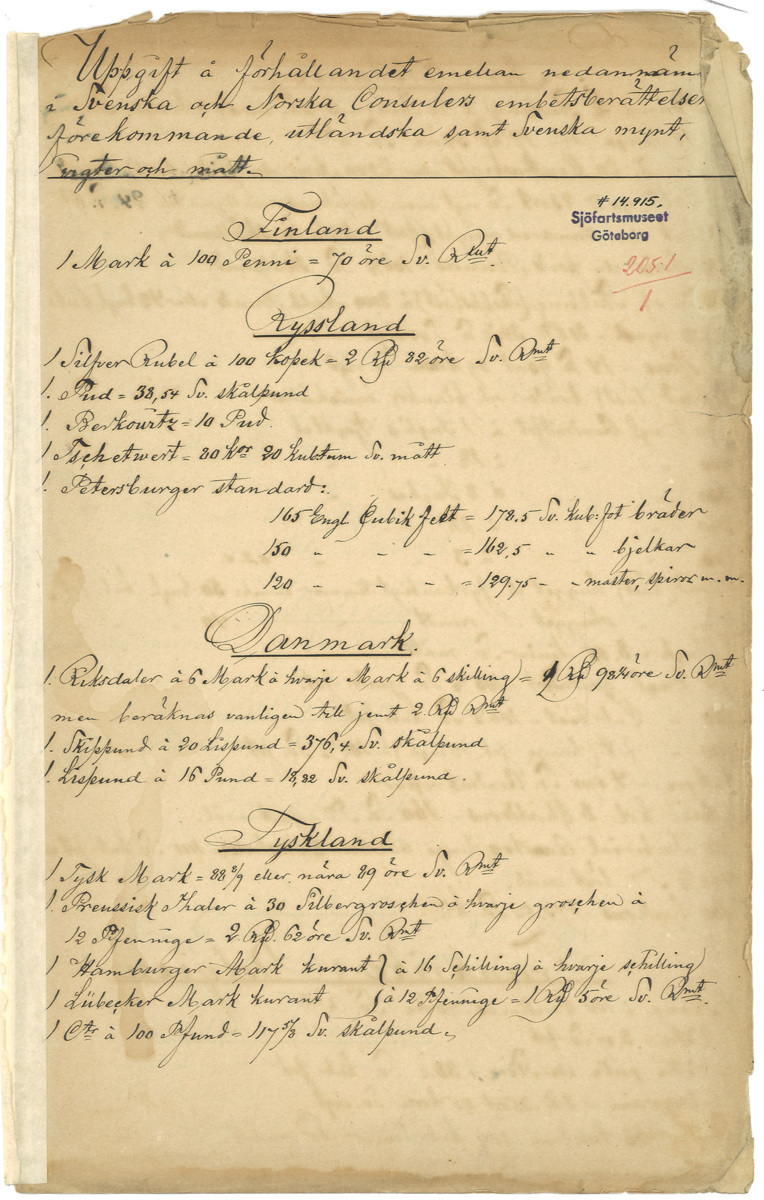 Uppgift å förhållandet emellan nedannämn
i Svenska och Norska Consulers embetsberättelser
förekommande, utländska samt Svenska mynt,
vigter och mått.
# 14.915.
Sjöfartsmuseet
Göteborg
205:1
1
Finland
1 Mark à 100 Penni = 70 öre Sv. Rmt.
Ryssland
1 Silfver Rubel à 100 Kopek = 2 Rd 82 öre Sv. Rmt
1. Pud = 38,54 Sv. skålpund
1. Berkowitz = 10 Pud.
1 Tschetwert = 80 Kor 20 kubtum Sv. mått
1. Petersburger standard:
165 Engl. Cubik feet = 178.5 Sv. kub:fot bräder
150 " " " = 162,5 " " bjelkar
120 " " " = 129.75 " " master, spiror m. m.
Danmark.
1. Riksdaler à 6 Mark à hvarje Mark à 6 skilling) = 1 Rd 98 3/4 öre Sv. Rmt
men beräknas vanligen till jemt 2 Rd Rmt
1. Skippund à 20 Lispund = 376,4 Sv. skålpund
1. Lispund à 16 Pund = 18,82 Sv. skålpund.
Tyskland
1 Tysk Mark = 88 8/9 eller nära 89 öre Sv. Rmt
1. Preussisk Thaler à 30 Silbergroschen à hvarje groschen à
12 Pfennige = 2 Rd. 62 öre Sv. Rmt
1 Hamburger Mark kurant } à 16 Schilling) à hvarje schilling)
1 Lübecker Mark kurant } à 12 Pfennige = 1 Rd 5 öre Sv. Rmt.
1 Ctr à 100 Pfund = 117 5/8 Sv. skålpund.